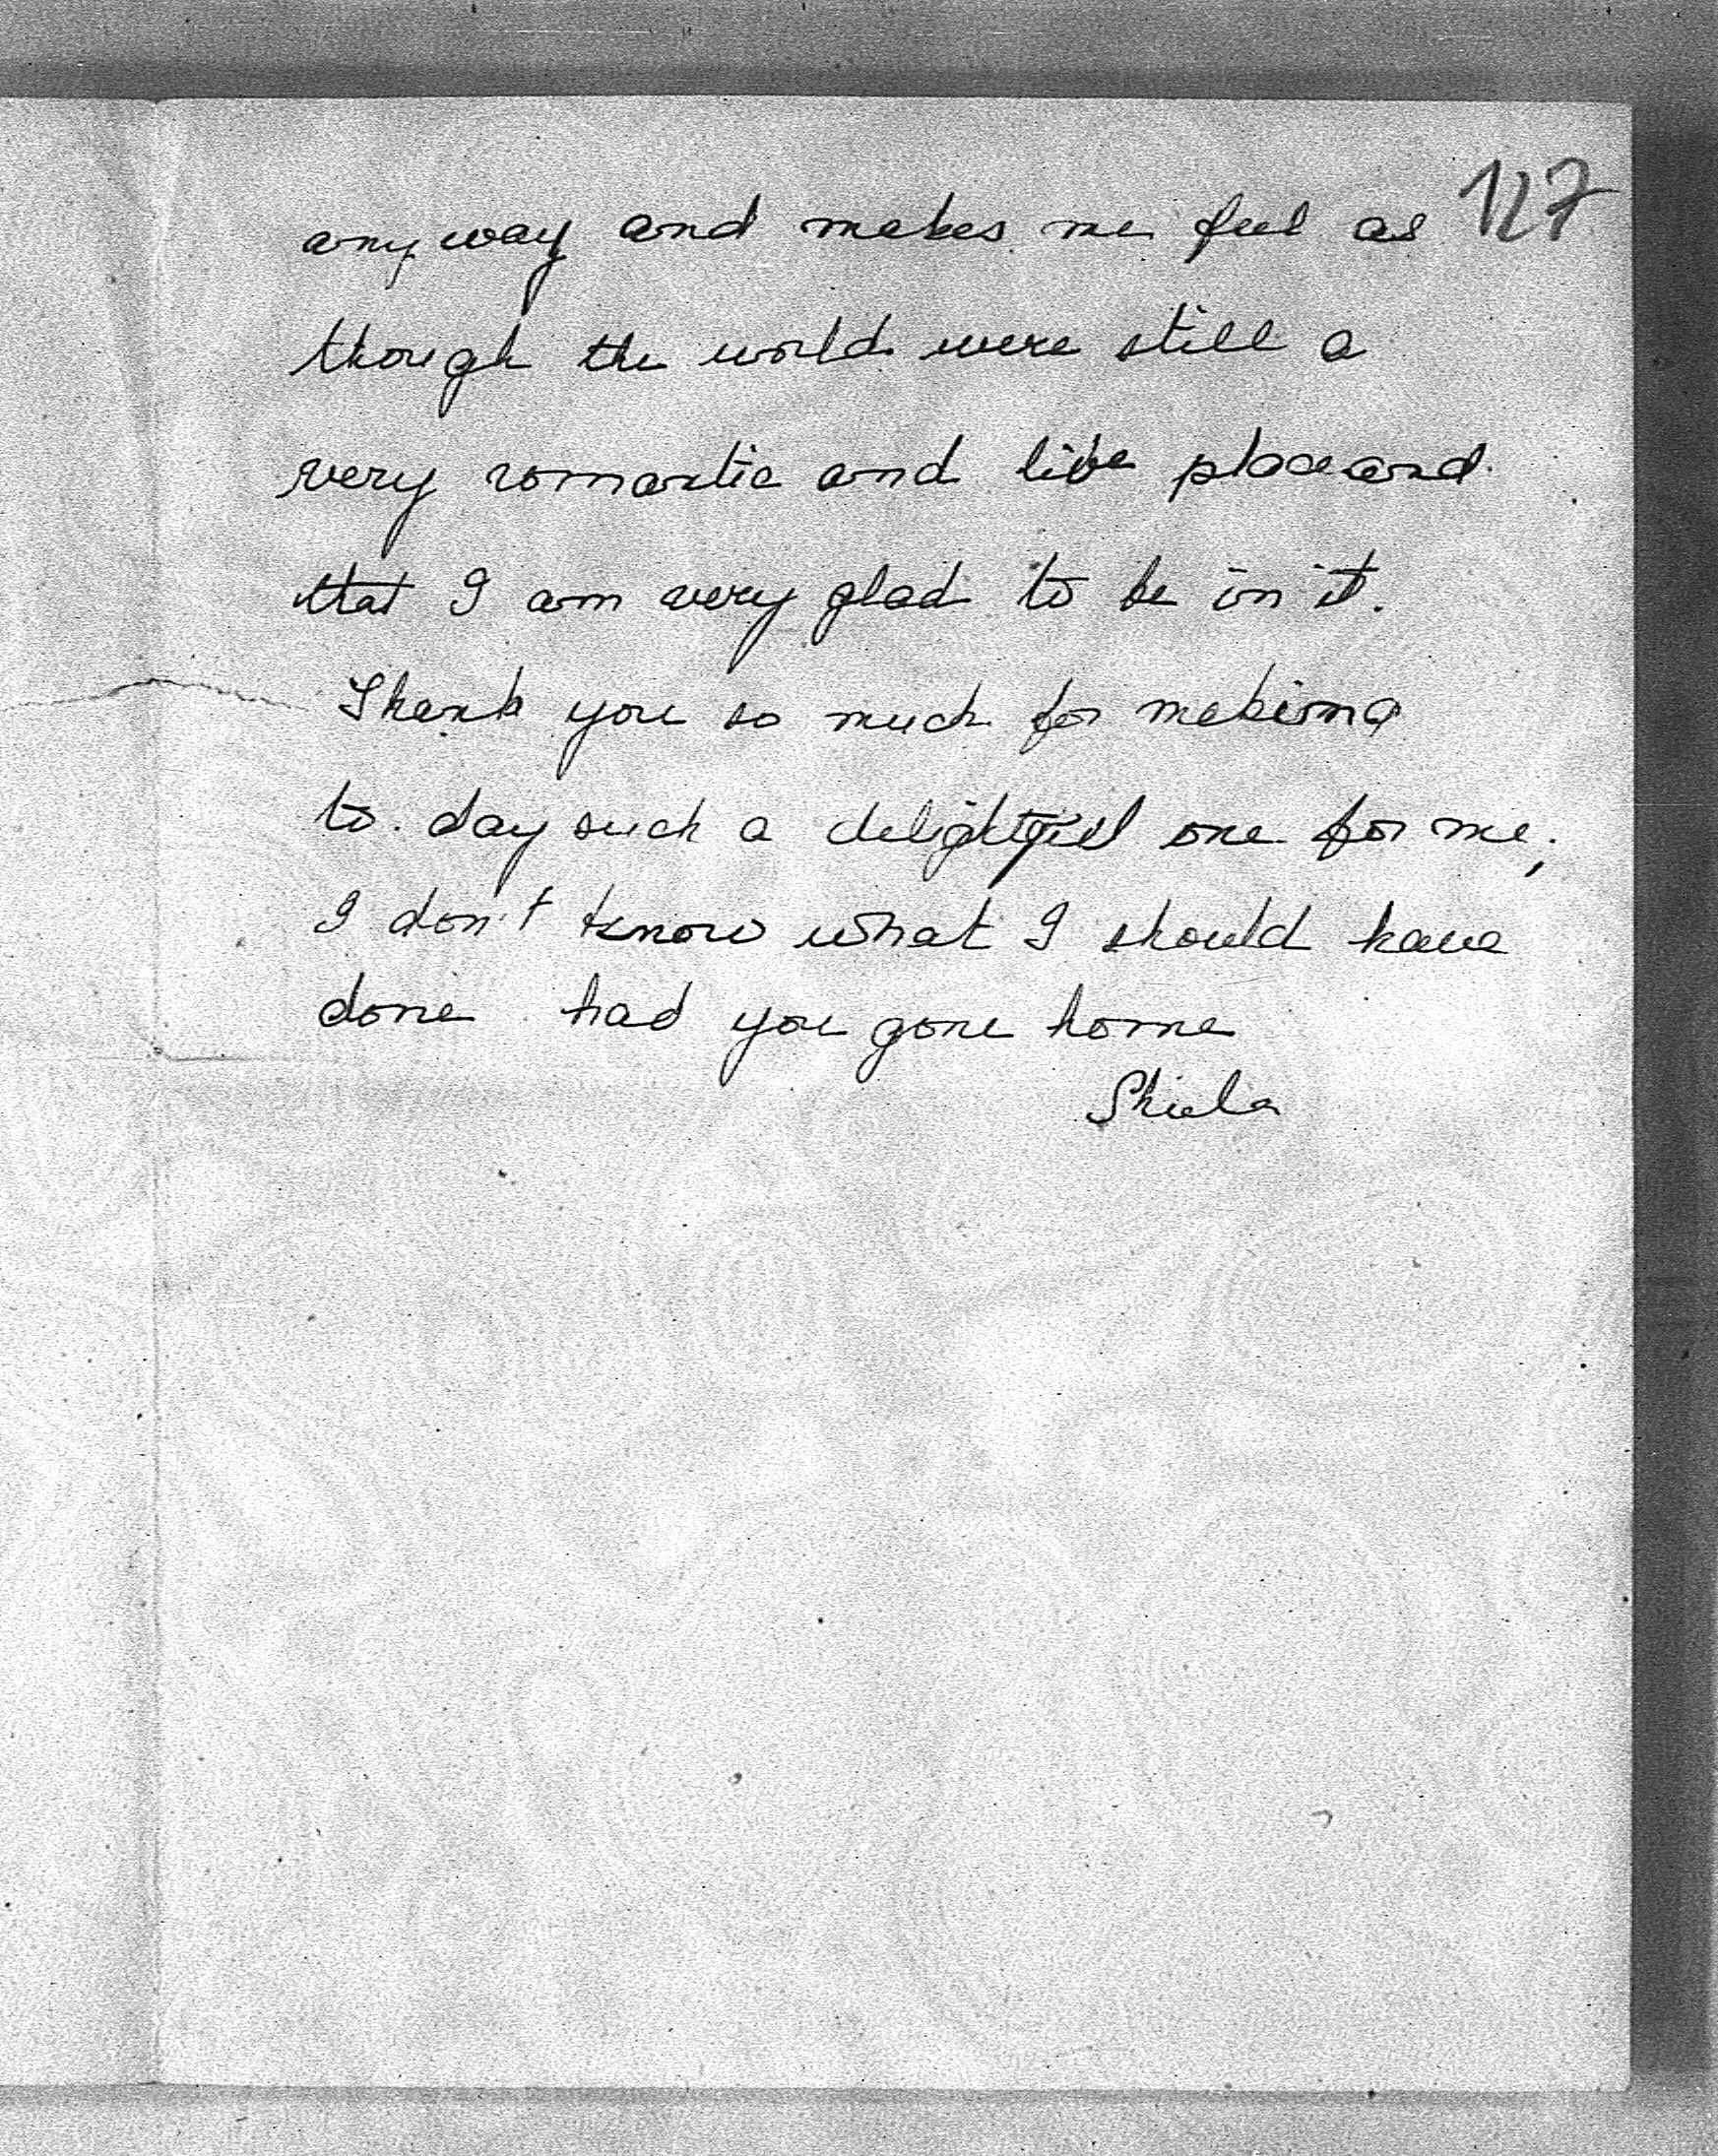 127
any way and makes me feel as
though the world were still a
very romantic and live place and
that I am very glad to be in it.
Thank you so much for making
to. day such a delightful one for me;
I don't know what I should have
done had you gone home
Shiela